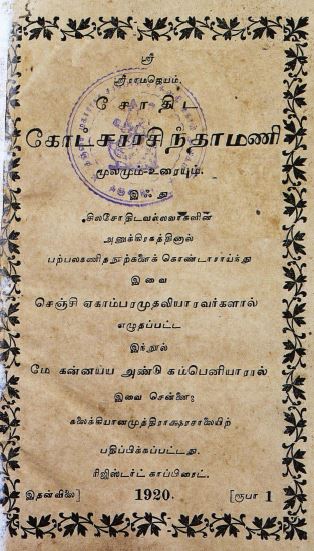 ஸ்ரீ
ஸ்ரீராமஜெயம்.
சோதிட
கோட்சாரசிந்தாமணி
மூலமும்-உரையும்.
இஃது
சிலசோதிடவல்லவர்களின்
அனுக்கிரகத்தினால்
பற்பலகணிதநூற்களைக் கொண்டாராய்ந்து
இவை
செஞ்சி ஏகாம்பரமுதலியாரவர்களால்
எழுதப்பட்ட
இந்நூல்
மே கன்னய்ய அண்டு கம்பெனியாரால்
இவை சென்னை:
கலைக்கியானமுத்திராக்ஷரசாலையிற்
பதிப்பிக்கப்பட்டது.
ரிஜிஸ்டர்ட் காப்பிரைட்.
இதன்விலை] 1920. [ரூபா 1